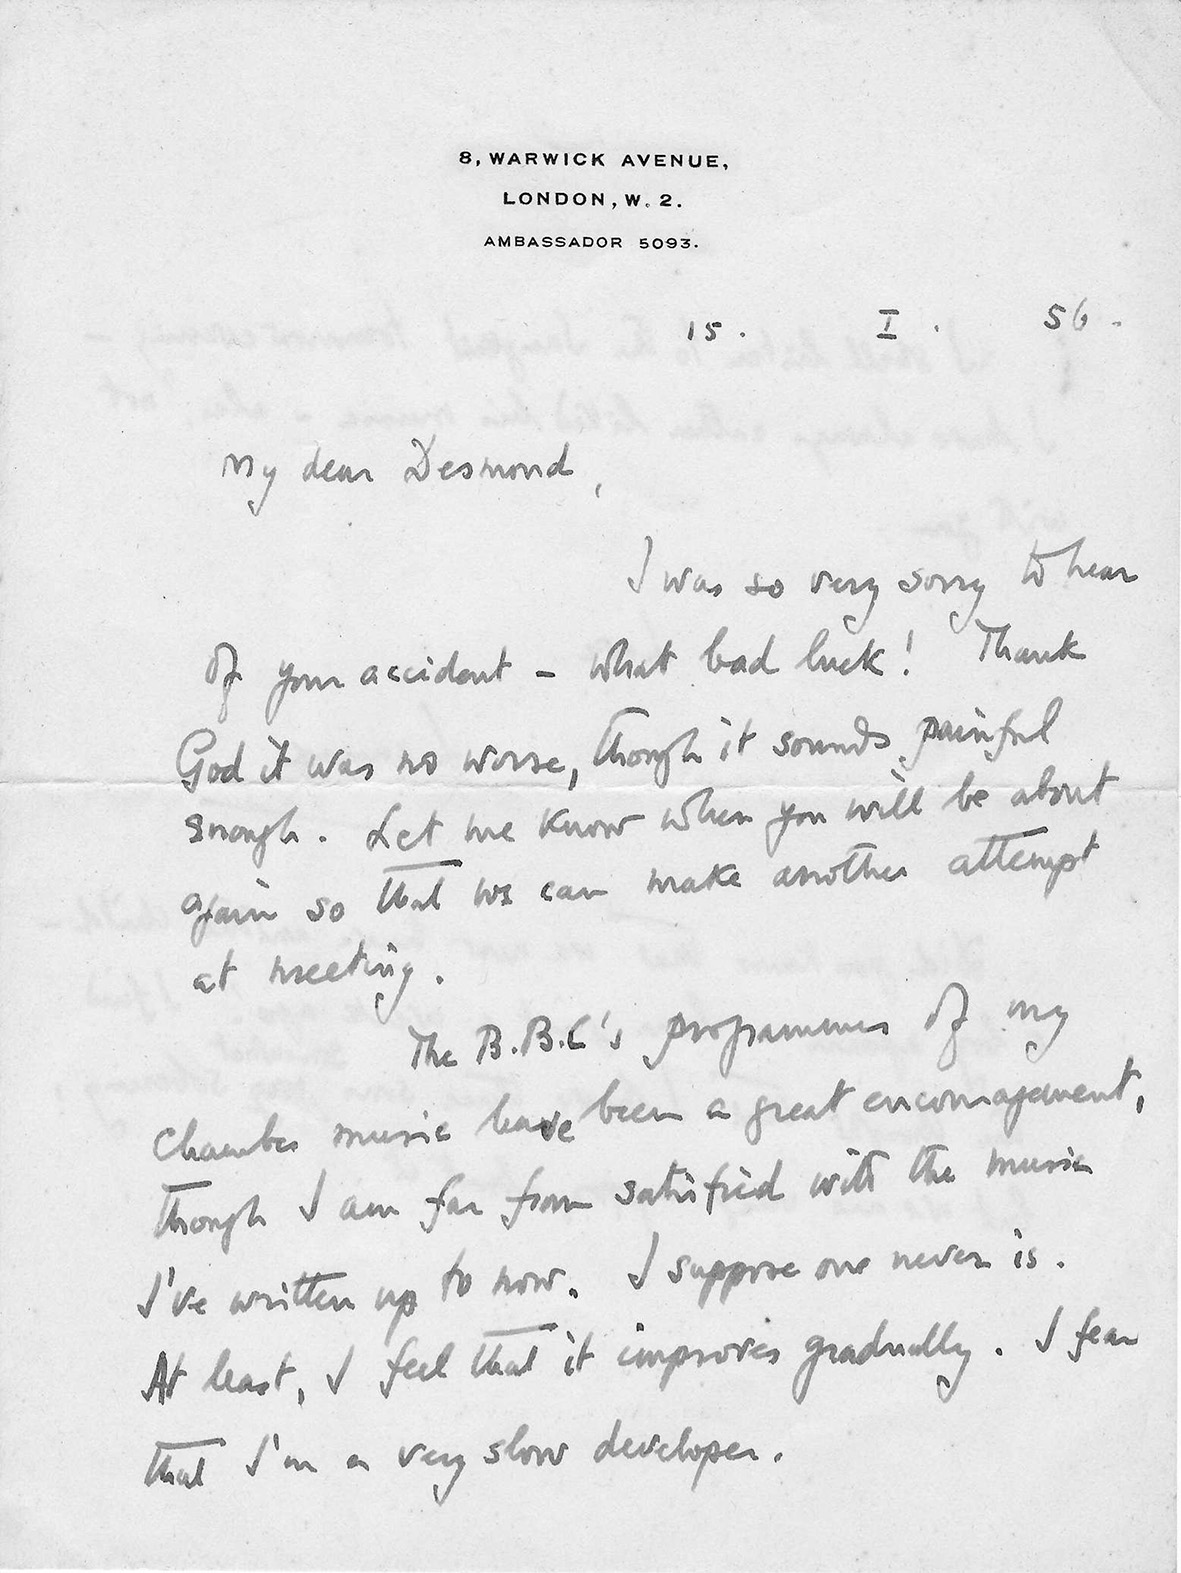 8, WARWICK AVENUE,
LONDON, W. 2.
AMBASSADOR 5093.
15. I. 56.
My dear Desmond,
I was so very sorry to hear
of your accident – what bad luck! Thank
God it was no worse, though it sounds painful
enough. Let me know when you will be about
again so that we can make another attempt
at meeting.
The B.B.C's programmes of my
chamber music have been a great encouragement,
though I am far from satisfied with the music
I've written up to now. I suppose one never is.
At least, I feel that it improves gradually. I fear
that I'm a very slow developer.